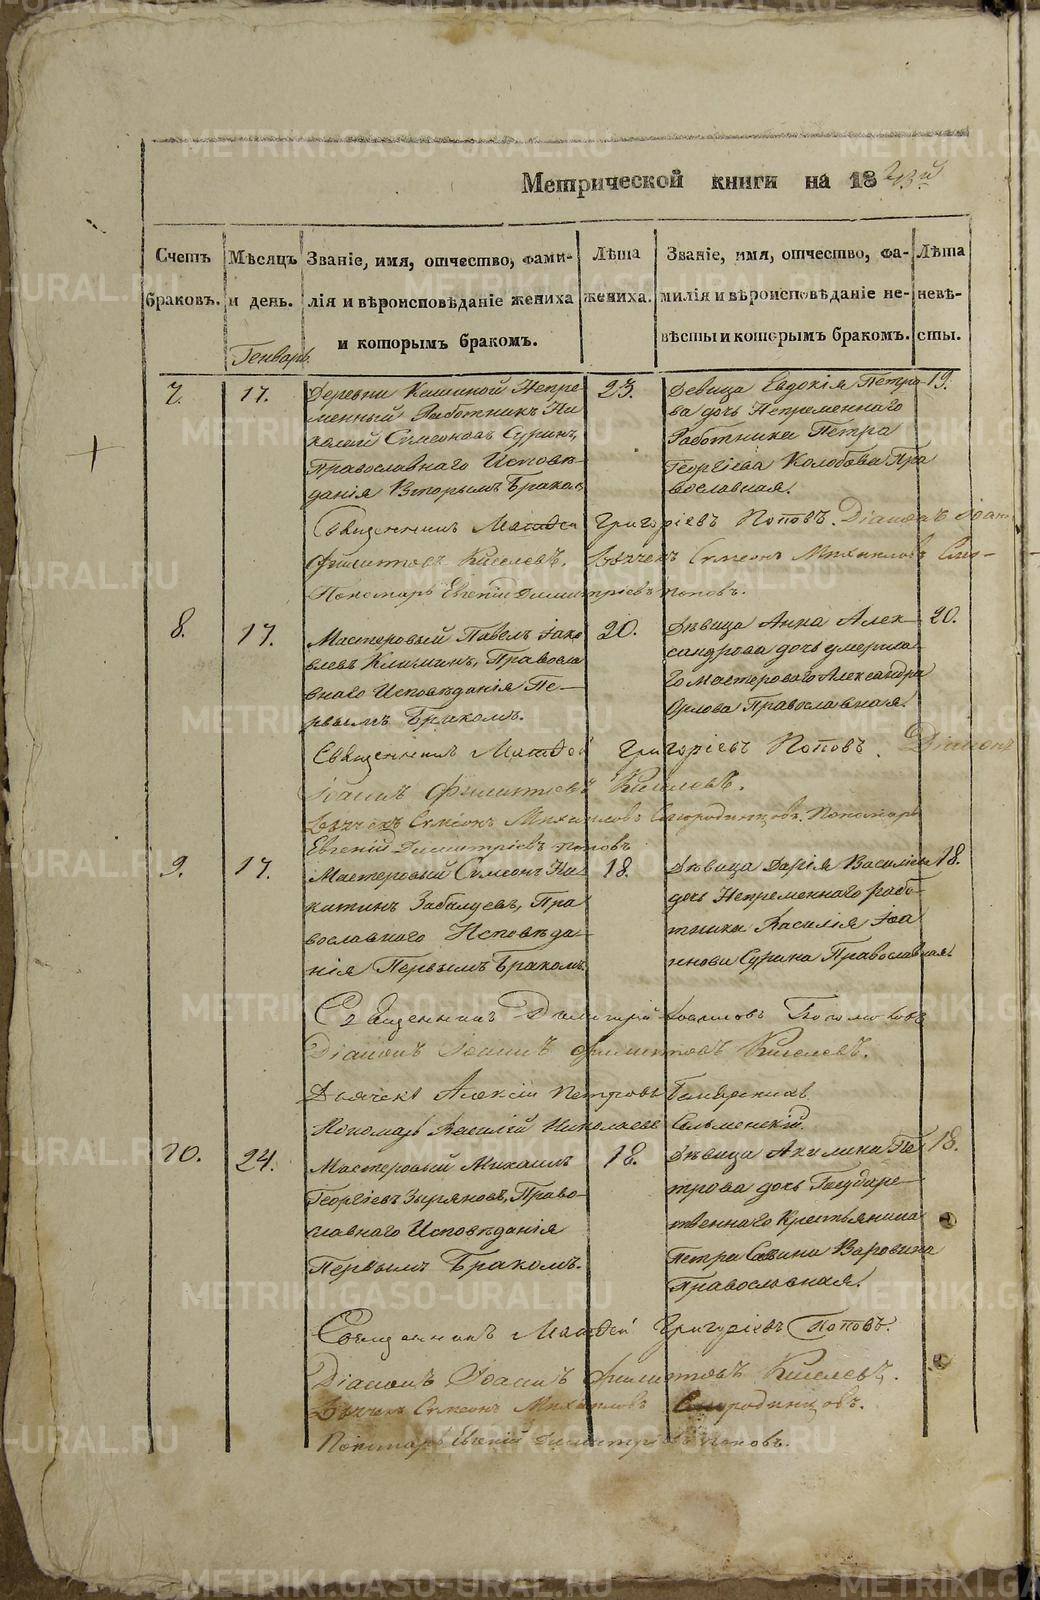 Метрической книги на 1843й
Счетъ браковъ.
Мѣсяцъ и день.
Званіе, имя, отчество, фами-
лія и вѣроисповѣданіе жениха
и которымъ бракомъ.
Лѣта жениха.
Званіе, имя, отчество, фа-
милія и вѣроисповѣданіе не-
вѣсты и которымъ бракомъ.
Лѣта невѣ-
сты.
Генварь
7.
17.
Деревни Кашиной Непре-
менный Работникъ Ни
колай Симеоновъ Суринъ,
Православнаго Исповѣ-
данія Вторымъ Бракомъ
23.
Девица Евдокія Петро-
ва дочь Непременнаго
Работника Петра
Георгіева Колобова Пра
вославная.
19.
Священникъ Матфей Григоріевъ Поповъ. Діаконъ Іоан
Филиповъ Киселевъ. Дьячекъ Симеонъ Михаиловъ Смо-
Пономарь Евгеній Димитріевъ Поповъ.
8.
17.
Мастеровый Павелъ Іако
влевъ Климинъ, Правосла
внаго Исповѣданія Пе-
рвымъ Бракомъ.
20.
Дѣвица Анна Алек-
сандрова дочь умерша-
го Мастероваго Александра
Орлова Православная.
20.
Священникъ Матфей Григоріевъ Поповъ. Діаконъ
Іоаннъ Филиповъ Киселевъ.
Дьячекъ Симеонъ Михаиловъ Смородинцовъ. Пономарь
Евгеній Димитріевъ Поповъ
9.
17.
Мастеровый Симеонъ Ни-
китинъ Забалуевъ, Пра
вославнаго Исповѣда-
нія Первымъ Бракомъ.
18.
Дѣвица Дарія Василіева
дочь Непременнаго рабо-
тника Василія Іоа
ннова Сурина Православная
18.
Священникъ Димитрій Іоанновъ
Діаконъ Іоаннъ Филиповъ Киселевъ.
Дьячекъ Алексій Петровъ
Пономарь Василій Николаевъ
10.
24.
Мастеровый Михаилъ
Георгіевъ Зыряновъ, Право-
славнаго Исповѣданія
Первымъ Бракомъ.
18.
Дѣвица Акилина Пе
трова дочь Государс-
твеннаго Крестьянина
Петра Савина Варовина
Православная.
18.
Священникъ Матфей Григоріевъ Поповъ.
Діаконъ Іоаннъ Филиповъ Киселевъ.
Дьячекъ Симеонъ Михаиловъ Смородинцовъ.
Пономарь Евгеній Димитріевъ Поповъ.
METRIKI.GASO-URAL.RU